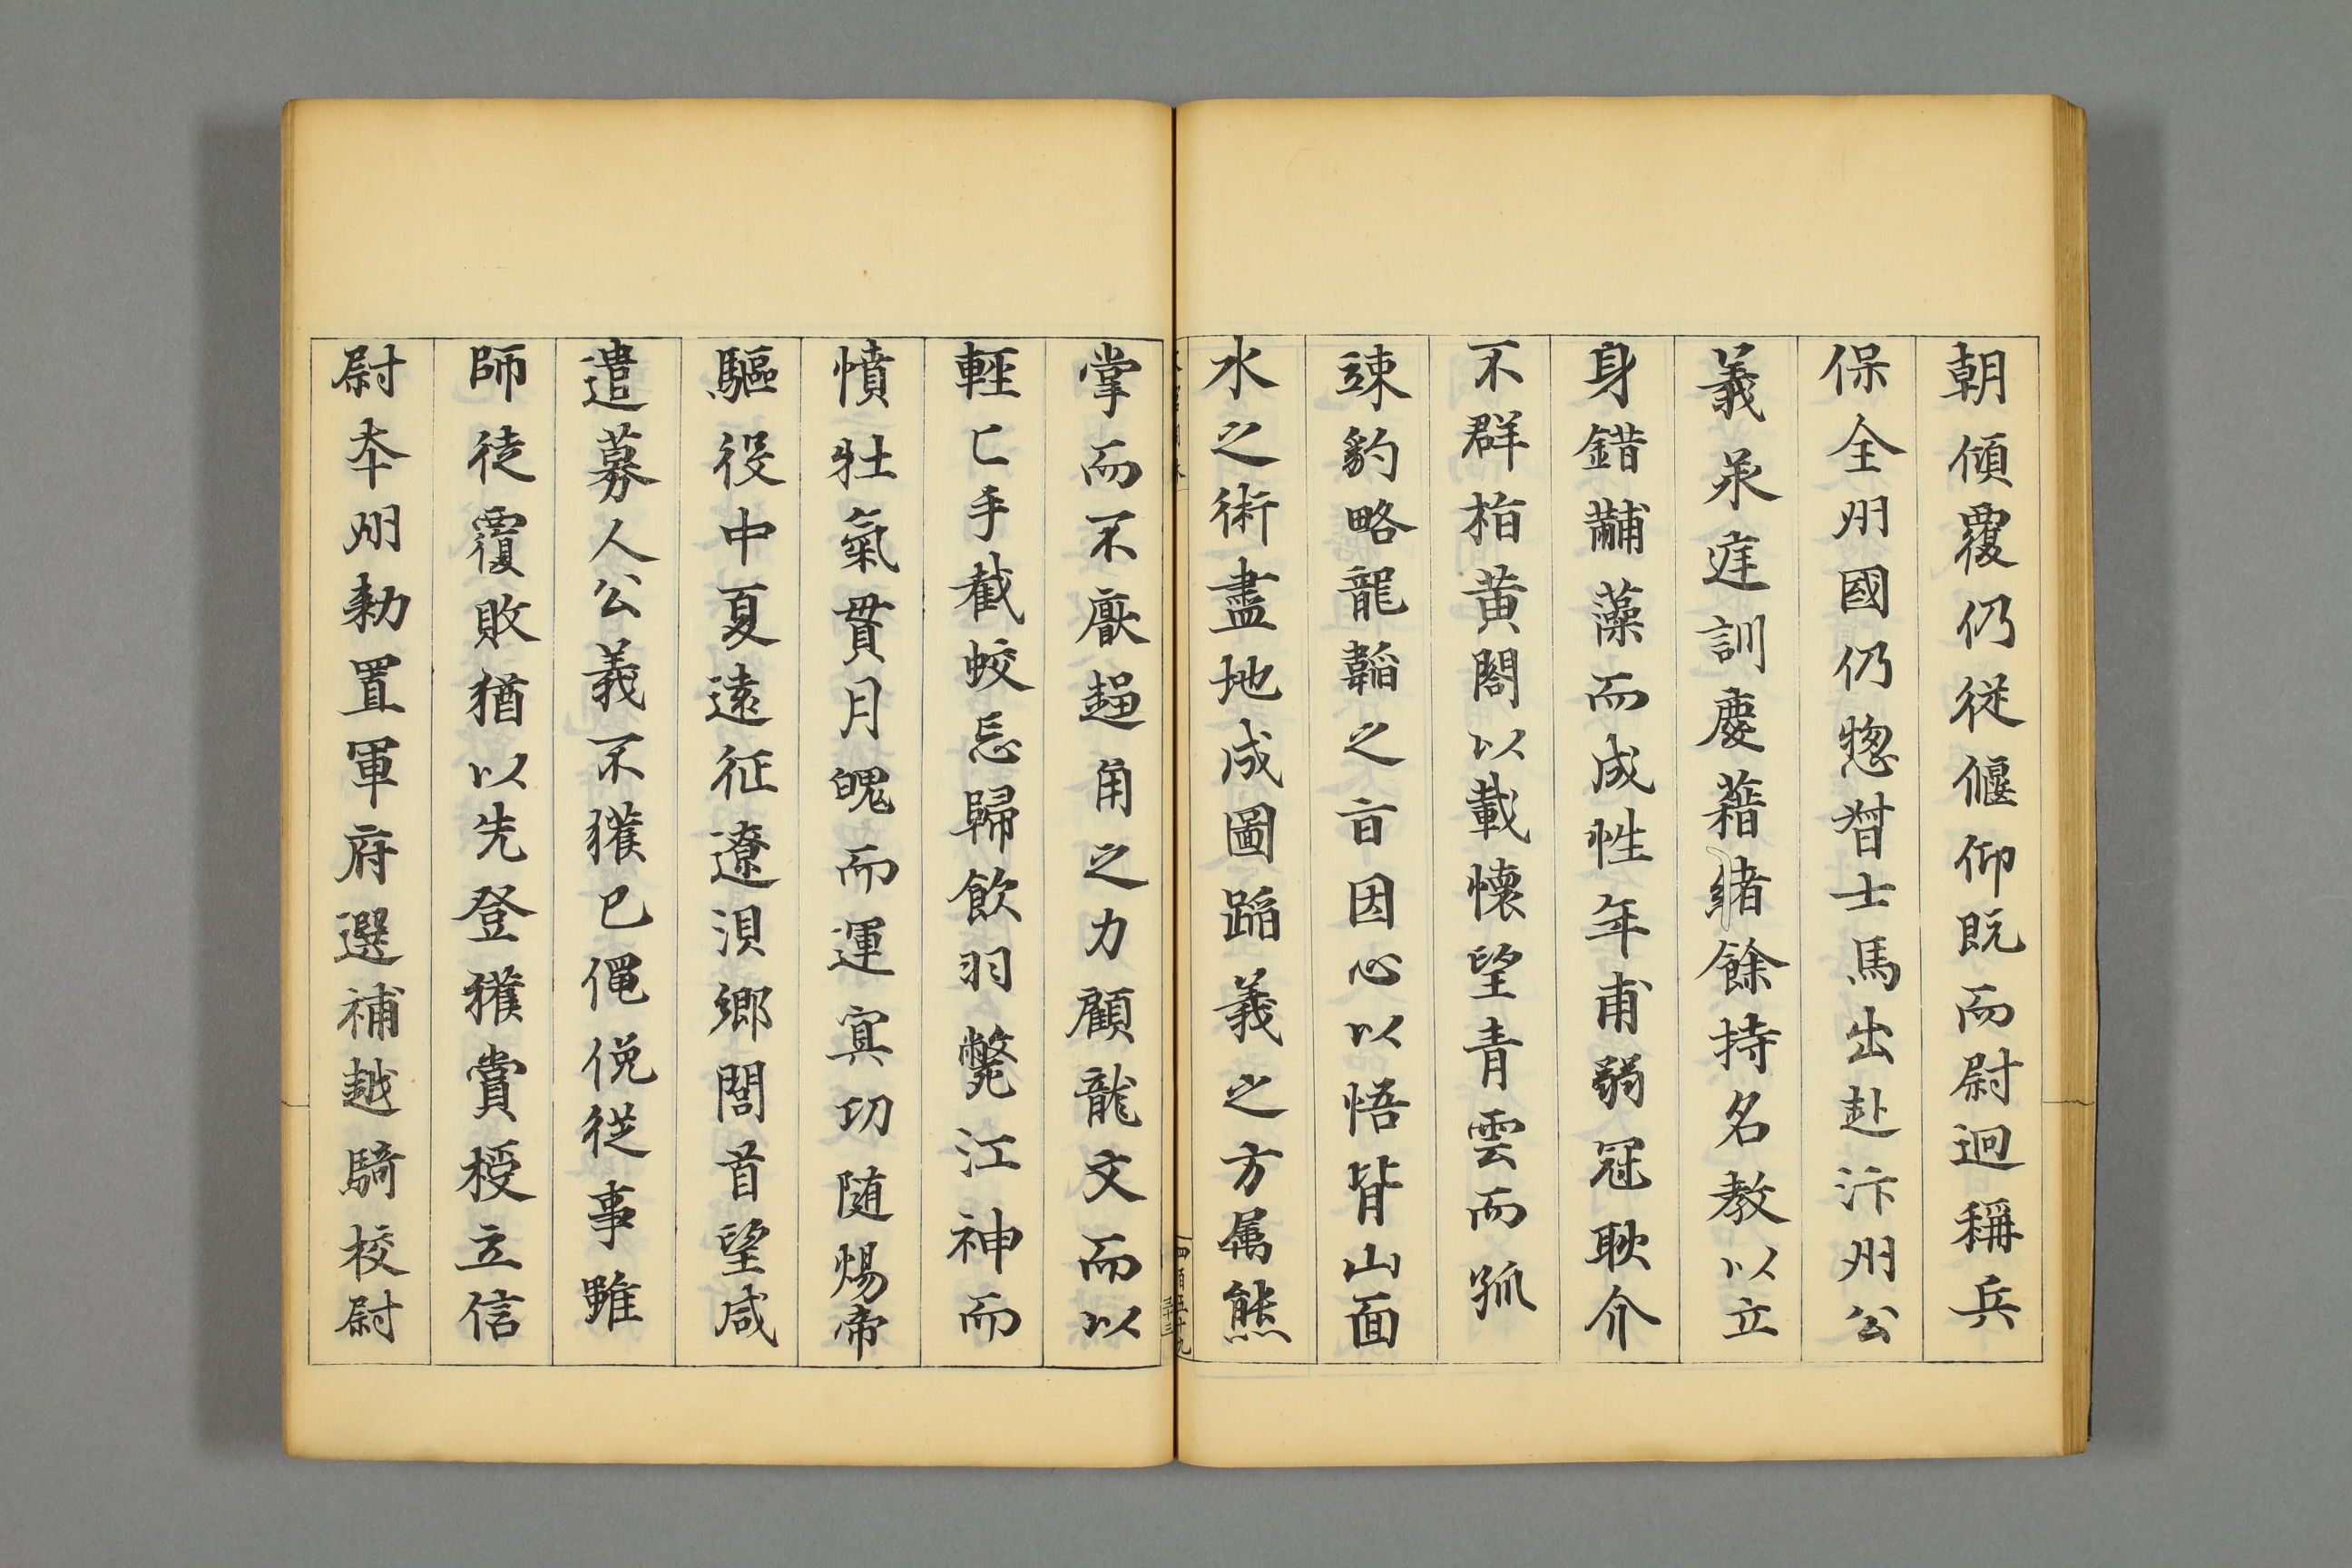 朝傾覆仍從偃仰既而尉迥稱兵
保全州國仍揔督士馬出赴汴州公
義承庭訓慶藉緒餘持名教以立
身錯黼藻而成性年甫弱冠耿介
不群指黄閣以載懷望青雲而孤
竦豹略龍韜之旨因心以悟背山面
水之術盡地成圖蹈義之方属熊
掌而不厭趨角之力顧龍文而以
輕匕手截蛟忘歸飲羽斃江神而
憤壯氣貫月魄而運冥功随煬帝
驅役中夏遠征遼浿鄉閭首望咸
遣募人公義不獲已僶俛從事雖
師徒覆敗猶以先登獲賞授立信
尉夲州勑置軍府選補越騎校尉